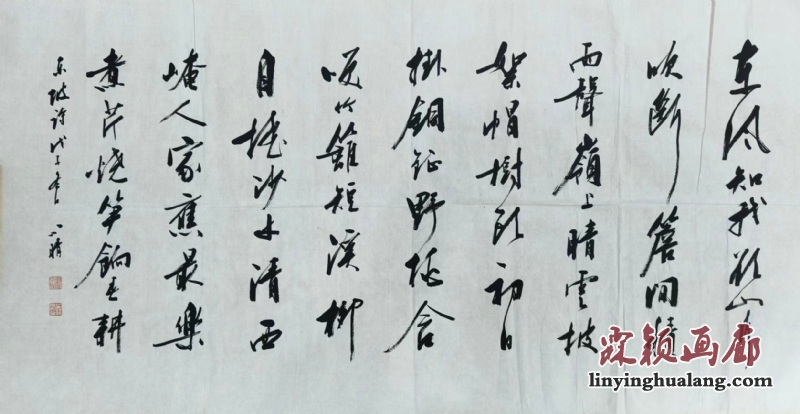 东风知我欲山行
吹断簷间積
雨聲嶺上晴雲披
絮帽樹头初日
掛銅鉦野桃含
咲竹籬短溪柳
自摇沙水清西
崦人家應最樂
煮芹烧笋餉春耕
东坡诗戊子春
霖颖画廊
linyinghualang.com